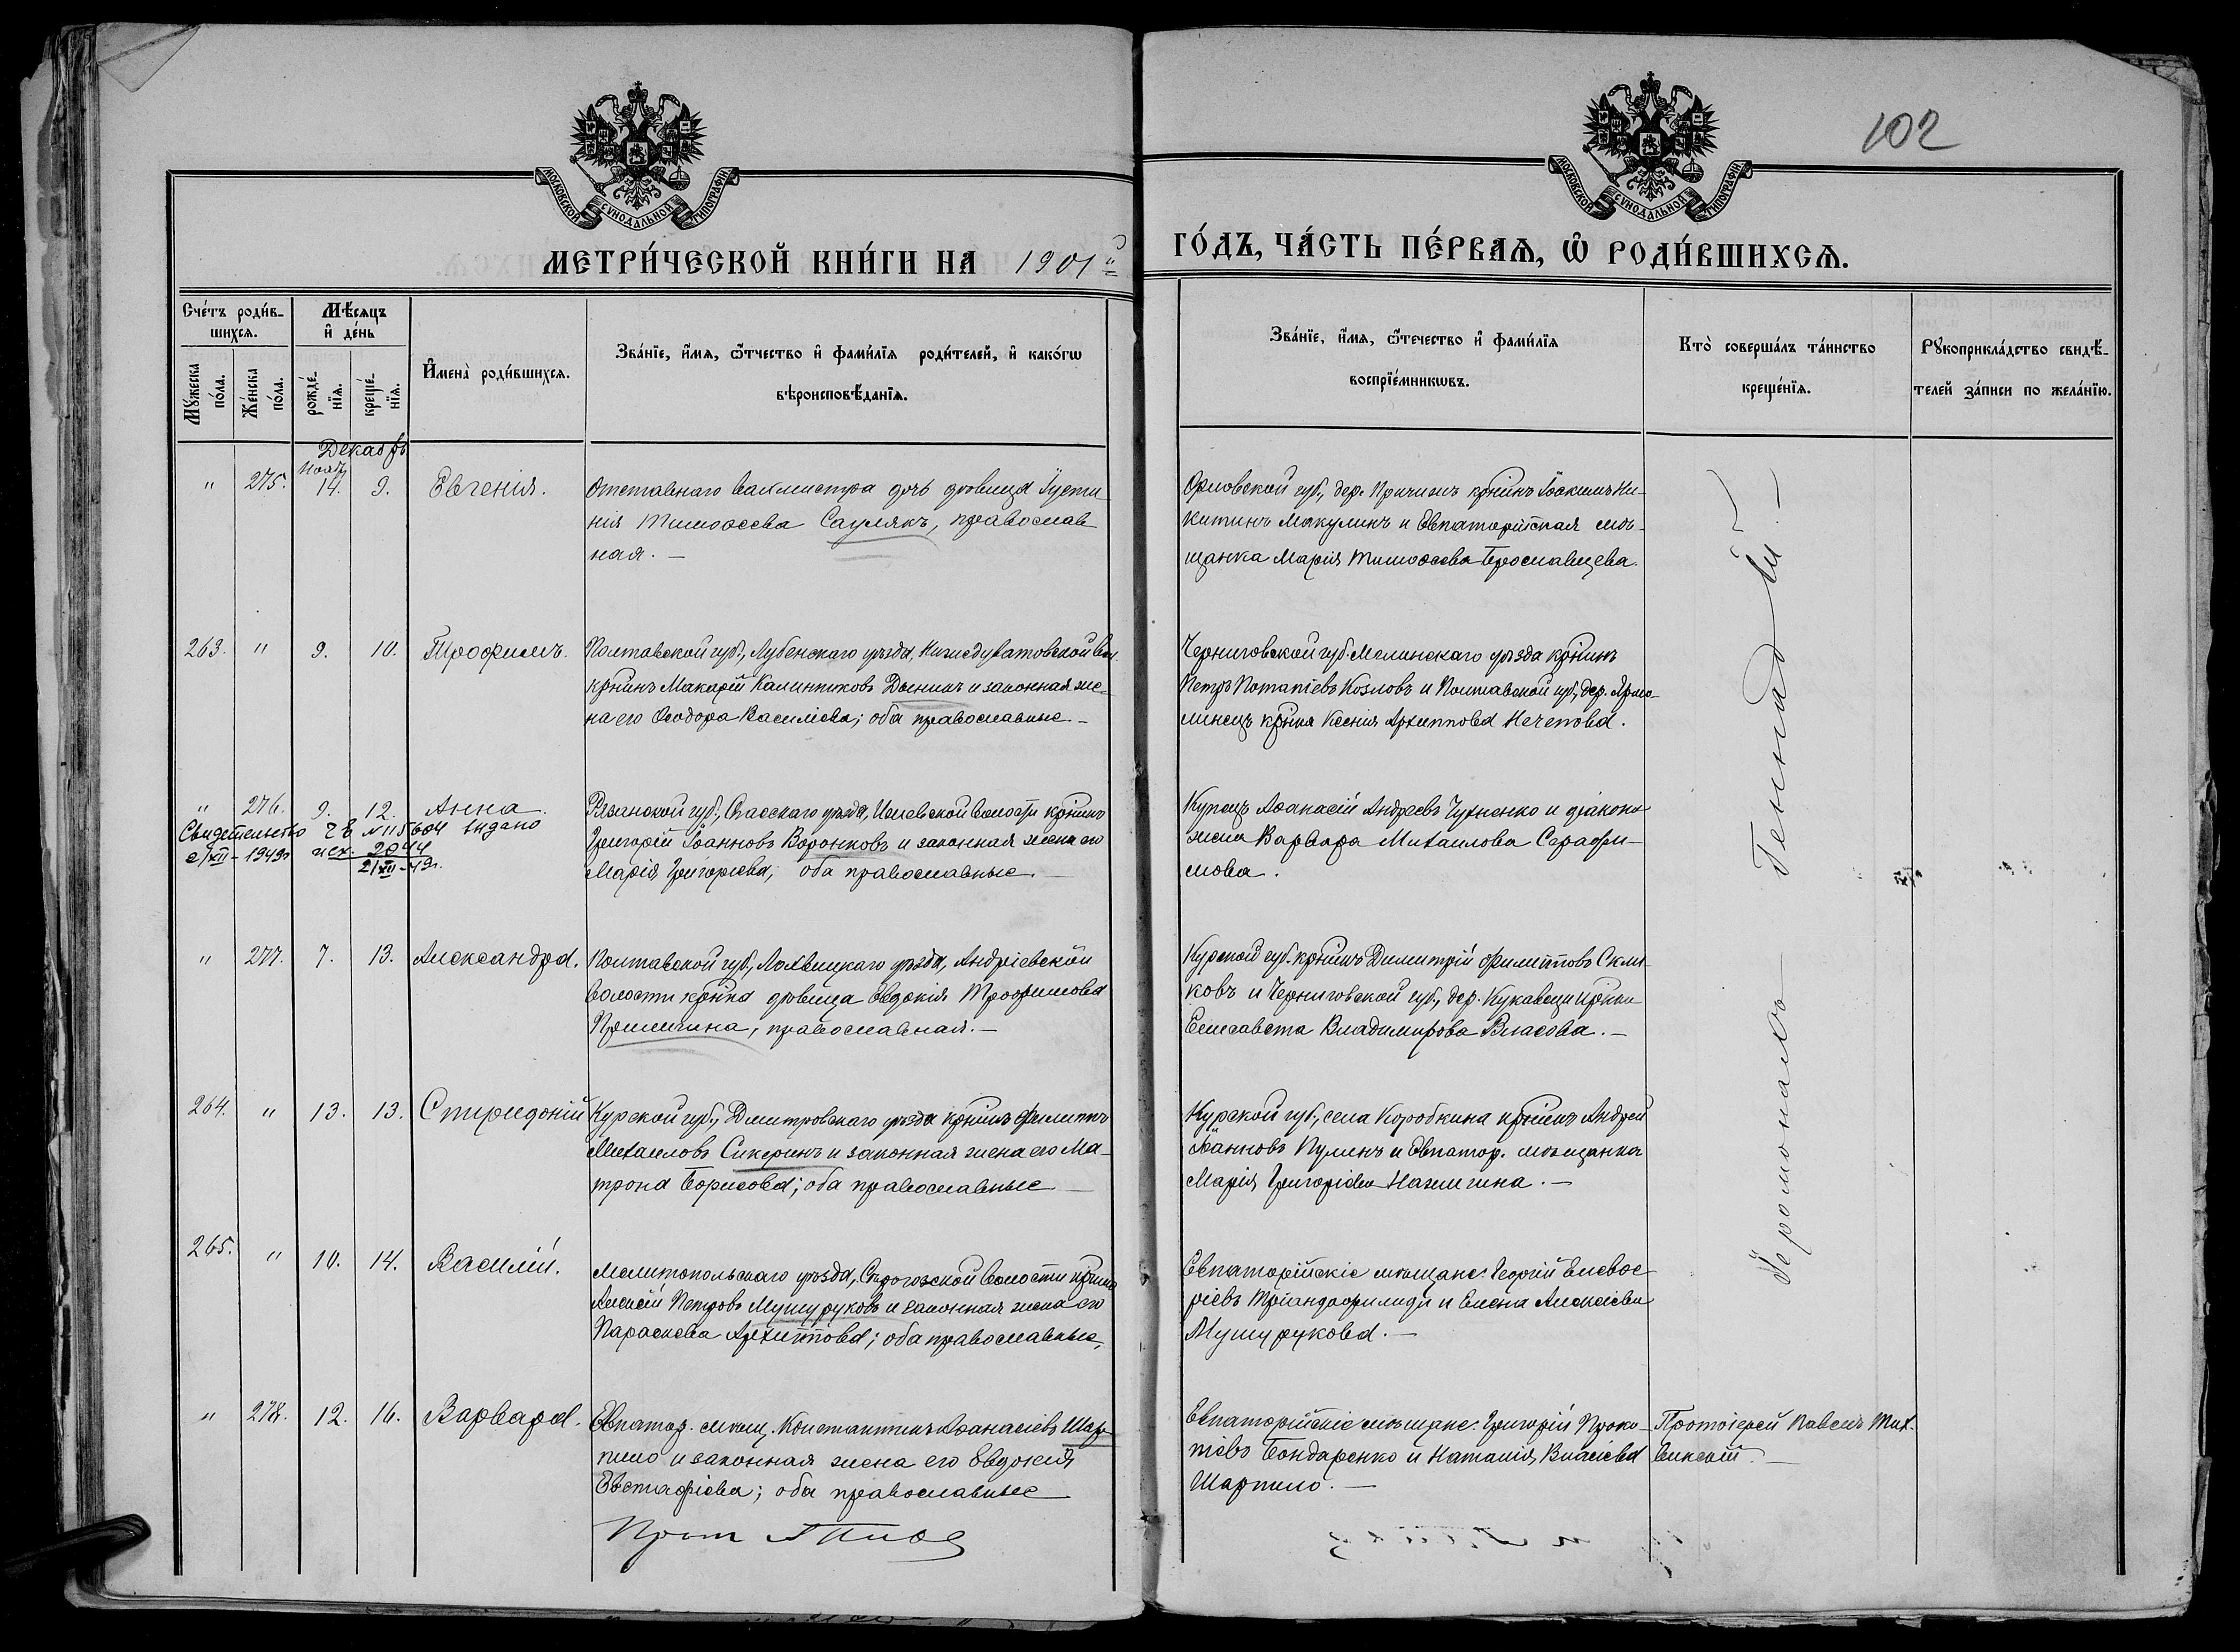 102
МОСКОВСКОЙ СѴНОДАЛЬНОЙ ТИПОГРАФІИ
МОСКОВСКОЙ СѴНОДАЛЬНОЙ ТИПОГРАФІИ
МЕТРИ́ЧЕСКОЙ КНИ́ГИ НА 1901й ГО́ДЪ, ЧА́СТЬ ПЕ́РВАѦ, Ѽ РОДИ́ВШИХСѦ.
Сче́тъ роди́в-
шихсѧ.
Мꙋ́жеска по́ла.
Же́нска по́ла.
Мѣ́сѧцъ
и҆ де́нь
рожде́-
нїѧ.
креще́-
нїѧ.
И҆мена̀ роди́вшихсѧ.
Зва́нїе, и҆́мѧ, ѻ҆́тчество и҆ фами́лїѧ роди́телей, и҆ како́гѡ
вѣроисповѣ́данїѧ.
Зва́нїе, и҆́мѧ, ѻ҆́течество и҆ фами́лїѧ
воспрїе́мникѡвъ.
Кто̀ соверша́лъ та́инство
креще́нїѧ.
Рꙋкоприкла́дство свидѣ́-
телей за́писи по жела́нїю.
Декабрь
" 275. Нояб. 14. 9. Евгенія.
Отставнаго вахмистра дочь дѣвица Іусти-
нія Тимоѳеева Саулякъ, православ
ная. —
Орловской губ., дер. кр҃нинъ Іоакимъ Ни-
китинъ Макулинъ и Евпаторійская мѣ-
щанка Марія Тимоѳеева Ярославцева.
263. " 9. 10. Трофимъ.
Полтавской губ., Лубенскаго уѣзда, вол.
кр҃нинъ Макарій Калинниковъ и законная же-
на его Ѳеодора Василіева; оба православные. —
Черниговской губ. Мглинскаго уѣзда кр҃нинъ
Петръ Потапіевъ Козловъ и Полтавской губ., дер. Ярмо-
линецъ кр҃нка Ксенія Архиппова Нечепова.
" 276. 9. 12. Анна
Свидетельство ЧВ № 115604 выдано
2/XII-1949г исх. 2044
21/XII-49г.
Рязанской губ., Спасскаго уѣзда, Ижевской волости кр҃нинъ
Григорій Іоанновъ Воронковъ и законная жена его
Марія Григорьева; оба православные. —
Купецъ Аѳанасій Андреевъ Чухненко и діакона
жена Варвара Михаилова Серафи-
мова.
" 277. 7. 13. Александра.
Полтавской губ., Лохвицкаго уѣзда, Андріевской
волости кр҃нка дѣвица Евдокія Трофимова
православная. —
Курской губ. кр҃нинъ Димитрій Филипповъ Скля-
ковъ и Черниговской губ., дер. кр҃нка
Елисавета Владимирова Власова. —
264. " 13. 13. Спиридоній
Курской губ., Дмитровскаго уѣзда кр҃нинъ Филиппъ
Михаиловъ Сикеринъ и законная жена его Ма-
трона Борисова; оба православные —
Курской губ., села Коробкина кр҃нинъ Андрей
Іоанновъ Пулинъ и Евпатор. мѣщанка
Марія Григоріева —
265. " 10. 14. Василій.
Мелитопольскаго уѣзда, волости кр҃нинъ
Алексій Петровъ Мушуруковъ и законная жена его
Параскева Архиппова; оба православные,
Евпаторійскіе мѣщане: Георгій Елевѳе-
ріевъ Тріандафилиди и Елена Алексіева
Мушурукова. —
Іеромонахъ Геннадій. —
" 278. 12. 16. Варвара.
Евпатор. мѣщ. Константинъ Аѳанасіевъ Шар-
пило и законная жена его Евдокія
Евстафіева; оба православные
Евпаторійскіе мѣщане: Григорій Проко-
піевъ Бондаренко и Наталія Власіева
Шарпило. —
Протоіерей Павелъ Тих-
винскій. —
Прот